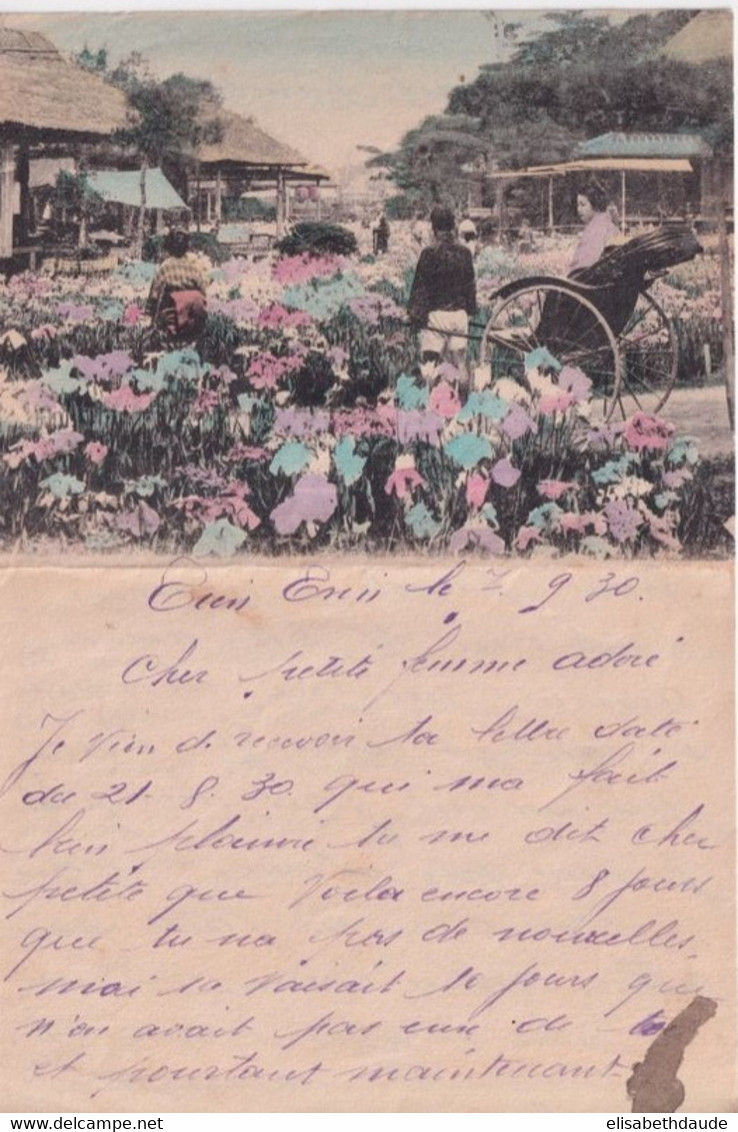 le 7. 9 30.
Cher petite femme adoré
Je Vien de recevoir ta lettre daté
du 21. 8. 30. qui ma fait
bien plaisire tu me dit cher
petite que Voila encore 8 jours
que tu na pas de nouvelles,
moi sa faisait 10 jours que
n'on avait pas eux de
et pourtant maintenant
elisabethdaude